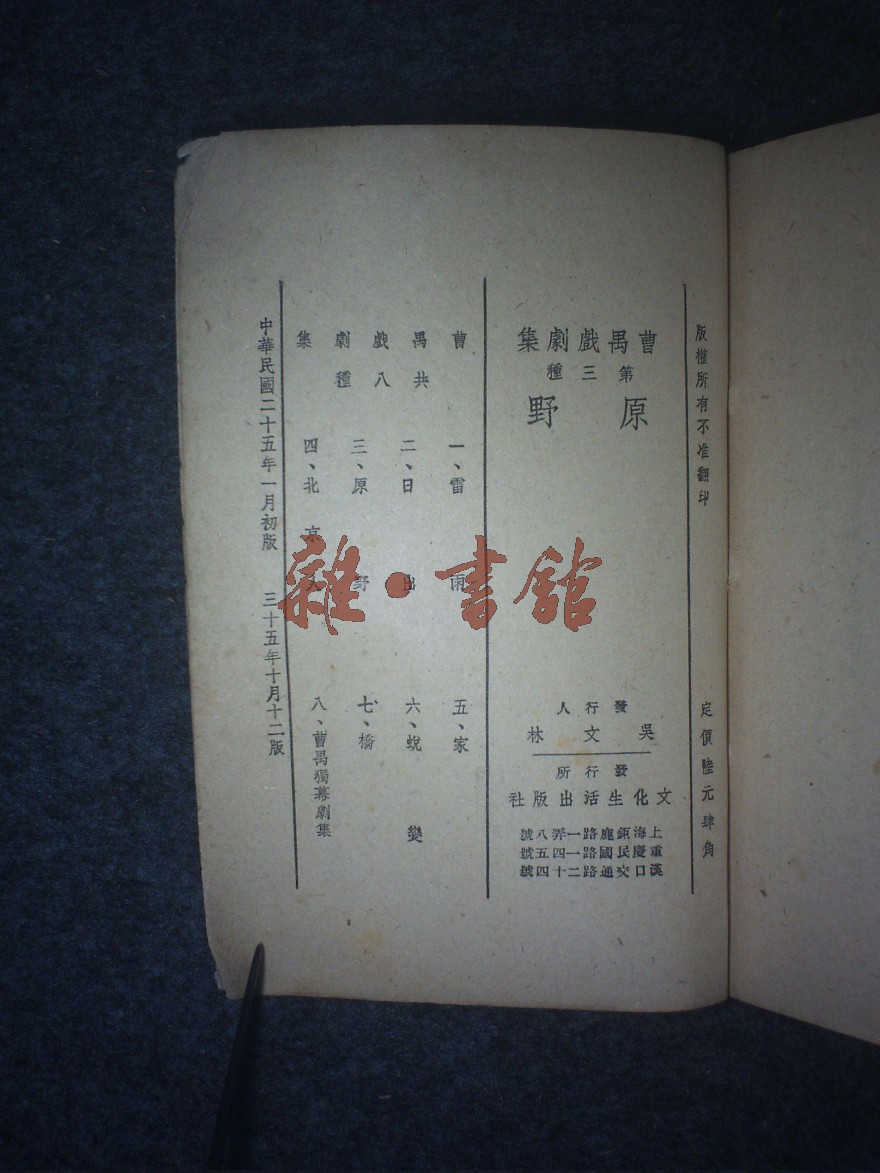 版權所有不准翻印
定價陸元肆角
曹禺戲劇集
第三種
原野
發行人
吳文林
發行所
文化生活出版社
上海鉅鹿路一弄八號
重慶民國路一四五號
漢口交通路二十四號
曹禺戲劇集
共八種
一、雷雨
二、日出
三、原野
四、北京人
五、家
六、蛻變
七、橋
八、曹禺獨幕劇集
中華民國二十五年一月初版
三十五年十月十二版
雜·書館